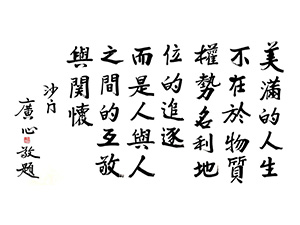 美滿的人生
不在於物質
權勢名利地
位的追逐
而是人與人
之間的互敬
與關懷
沙門
廣心敬題